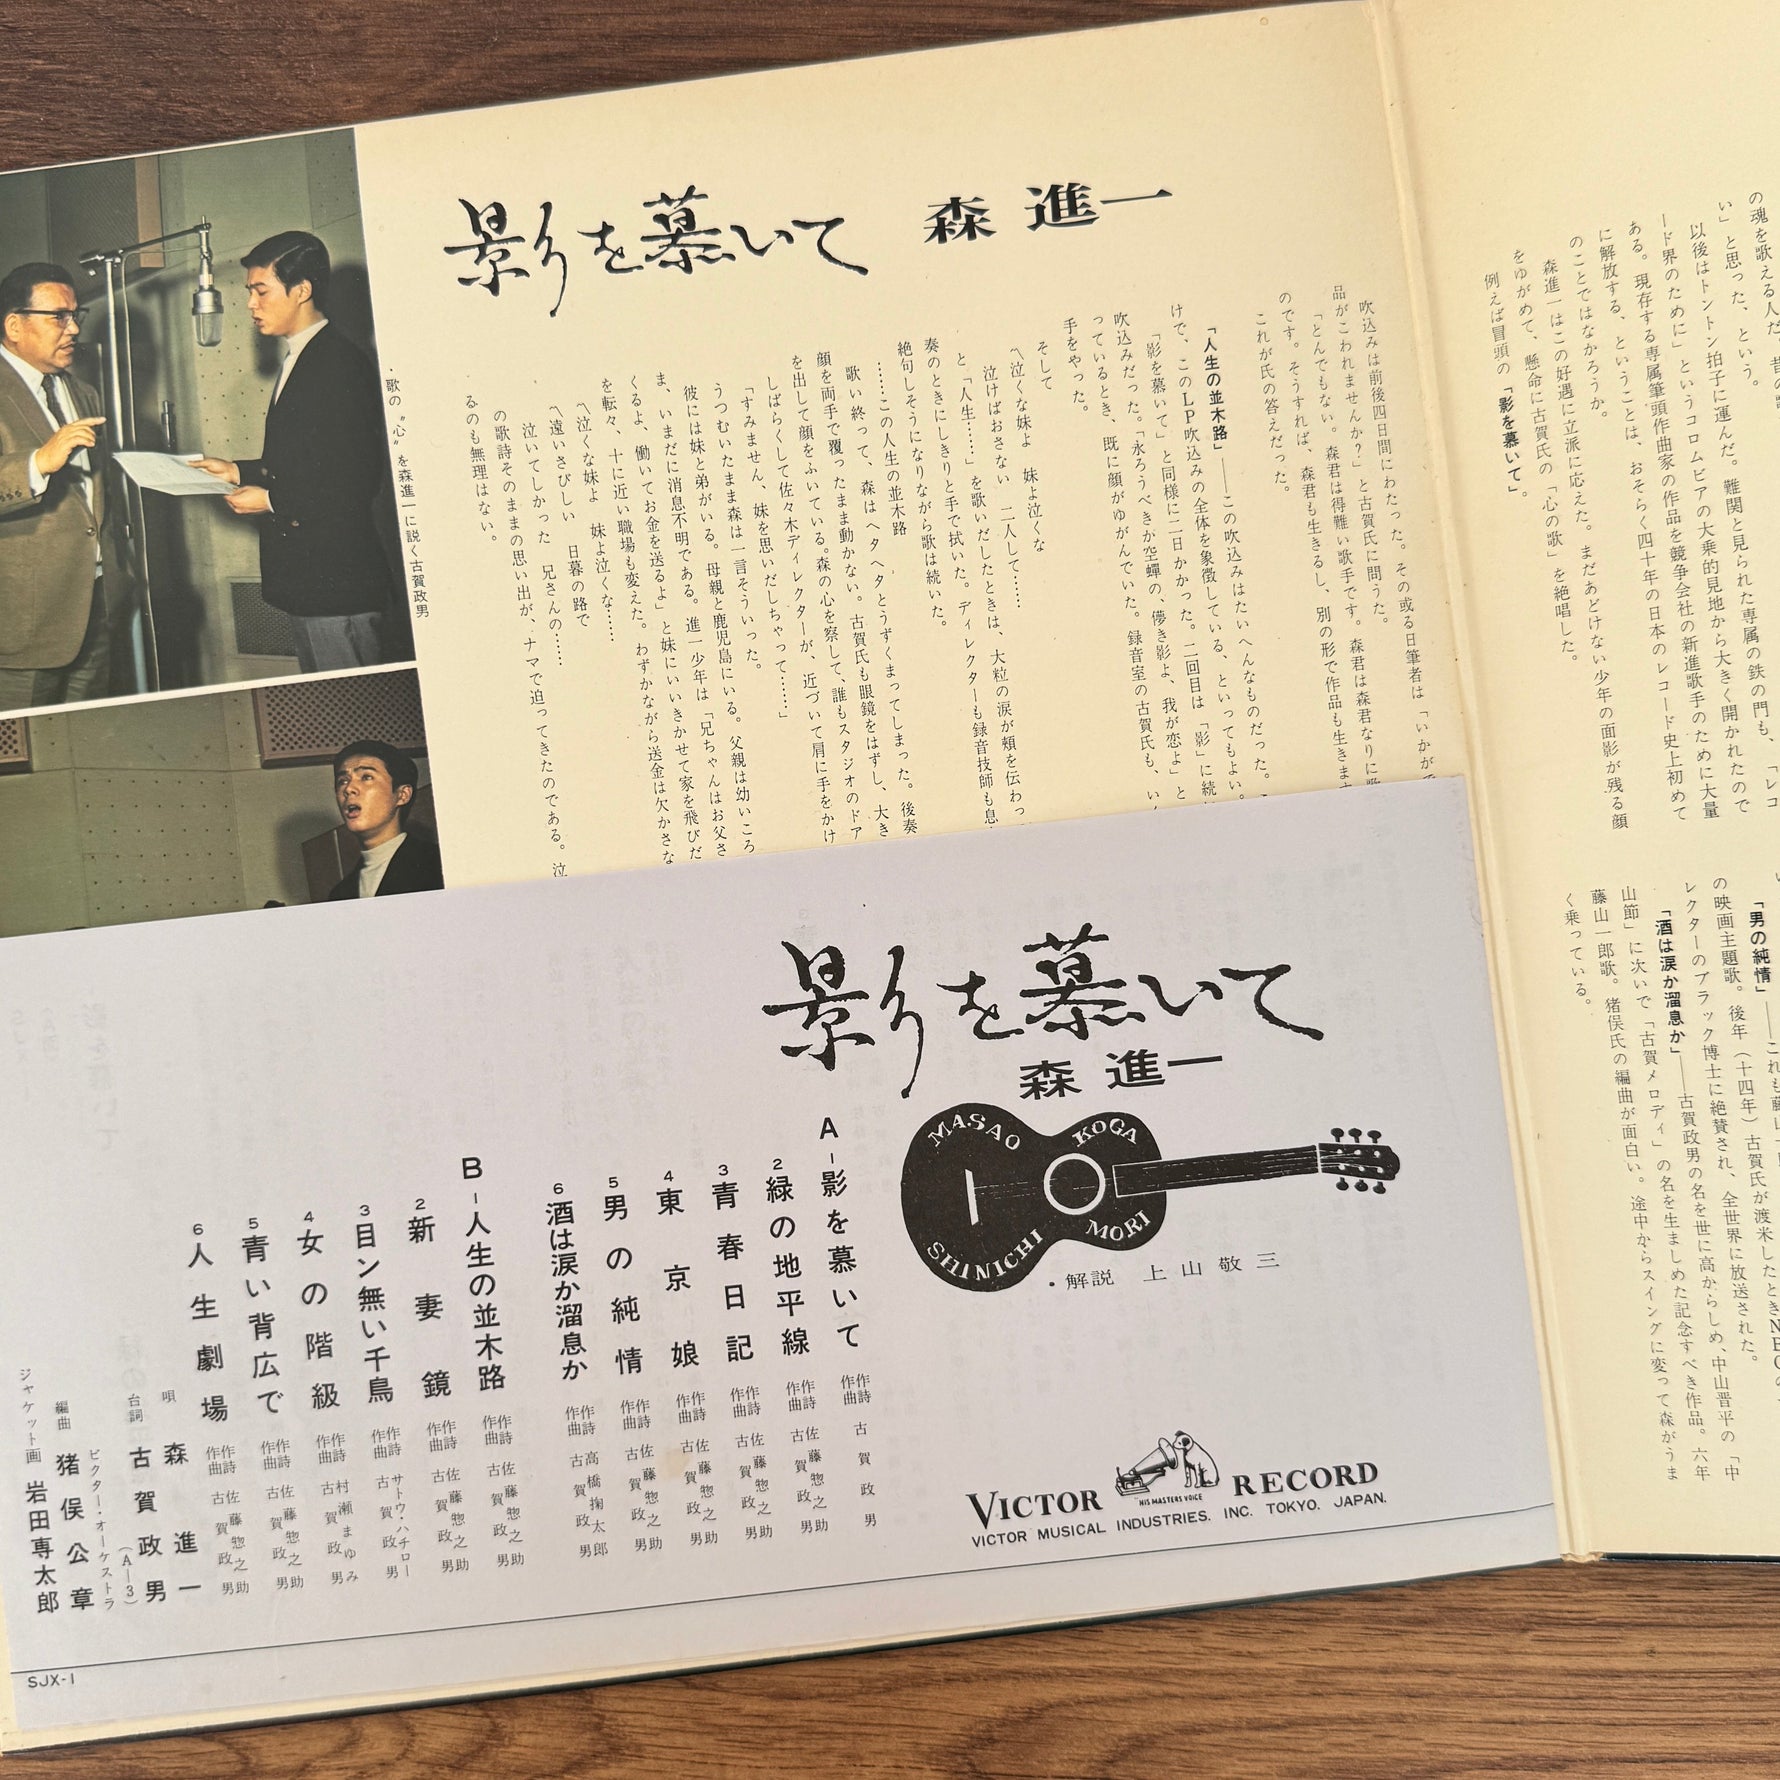 影を慕いて 森 進一
・歌の〝心〟を森進一に説く古賀政男
の魂を歌える人だ。昔の
い」と思った、という。
以後はトントン拍子に運んだ。難関と見られた専属の鉄の門も、「レコ
ード界のために」というコロムビアの大乗的見地から大きく開かれたので
ある。現存する専属筆頭作曲家の作品を競争会社の新進歌手のために大量
に解放する、ということは、おそらく四十年の日本のレコード史上初めて
のことではなかろうか。
森進一はこの好遇に立派に応えた。まだあどけない少年の面影が残る顔
をゆがめて、懸命に古賀氏の「心の歌」を絶唱した。
例えば冒頭の「影を慕いて」。
吹込みは前後四日間にわたった。その或る日筆者は「いかがで
品がこわれませんか?」と古賀氏に問うた。
「とんでもない。森君は得難い歌手です。森君は森君なりに歌
のです。そうすれば、森君も生きるし、別の形で作品も生きます
これが氏の答えだった。
「人生の並木路」――この吹込みはたいへんなものだった。
けで、このLP吹込みの全体を象徴している、といってもよい。
「影を慕いて」と同様に二日かかった。二回目は「影」に続
吹込みだった。「永ろうべきか空蟬の、儚き影よ、我が恋よ」と
っているとき、既に顔がゆがんでいた。録音室の古賀氏も、い
手をやった。
そして
〽泣くな妹よ 妹よ泣くな
泣けばおさない 二人して……
と「人生……」を歌いだしたときは、大粒の涙が頬を伝わっ
奏のときにしきりと手で拭いた。ディレクターも録音技師も息
絶句しそうになりながら歌は続いた。
……この人生の並木路
歌い終って、森はヘタヘタとうずくまってしまった。後奏
顔を両手で覆ったまま動かない。古賀氏も眼鏡をはずし、大き
を出して顔をふいている。森の心を察して、誰もスタジオのドア
しばらくして佐々木ディレクターが、近づいて肩に手をかけ
「すみません、妹を思いだしちゃって……」
うつむいたまま森は一言そういった。
彼には妹と弟がいる。母親と鹿児島にいる。父親は幼いころ
ま、いまだに消息不明である。進一少年は「兄ちゃんはお父さ
くるよ、働いてお金を送るよ」と妹にいいきかせて家を飛びだ
を転々、十に近い職場も変えた。わずかながら送金は欠かさな
〽泣くな妹よ 妹よ泣くな……
〽遠いさびしい 日暮の路で
泣いてしかった 兄さんの……
の歌詩そのままの思い出が、ナマで迫ってきたのである。泣
るのも無理はない。
「男の純情」――これも藤山一
の映画主題歌。後年(十四年)古賀氏が渡米したときNBCの
レクターのブラック博士に絶賛され、全世界に放送された。
「酒は涙か溜息か」――古賀政男の名を世に高からしめ、中山晋平の「中
山節」に次いで「古賀メロディ」の名を生ましめた記念すべき作品。六年
藤山一郎歌。猪俣氏の編曲が面白い。途中からスイングに変って森がうま
く乗っている。
影を慕いて
森 進一
MASAO KOGA
SHINICHI MORI
・解説 上山敬三
A-1 影を慕いて 作詩 作曲 古賀政男
2 緑の地平線 作詩 佐藤惣之助 作曲 古賀政男
3 青春日記 作詩 佐藤惣之助 作曲 古賀政男
4 東京娘 作詩 佐藤惣之助 作曲 古賀政男
5 男の純情 作詩 佐藤惣之助 作曲 古賀政男
6 酒は涙か溜息か 作詩 高橋掬太郎 作曲 古賀政男
B-1 人生の並木路 作詩 佐藤惣之助 作曲 古賀政男
2 新妻鏡 作詩 佐藤惣之助 作曲 古賀政男
3 目ン無い千鳥 作詩 サトウ・ハチロー 作曲 古賀政男
4 女の階級 作詩 村瀬まゆみ 作曲 古賀政男
5 青い背広で 作詩 佐藤惣之助 作曲 古賀政男
6 人生劇場 作詩 佐藤惣之助 作曲 古賀政男
唄 森進一
台詞 古賀政男 (A-3)
ビクター・オーケストラ
編曲 猪俣公章
ジャケット画 岩田専太郎
HIS MASTERS VOICE
VICTOR RECORD
VICTOR MUSICAL INDUSTRIES. INC. TOKYO. JAPAN.
SJX-1